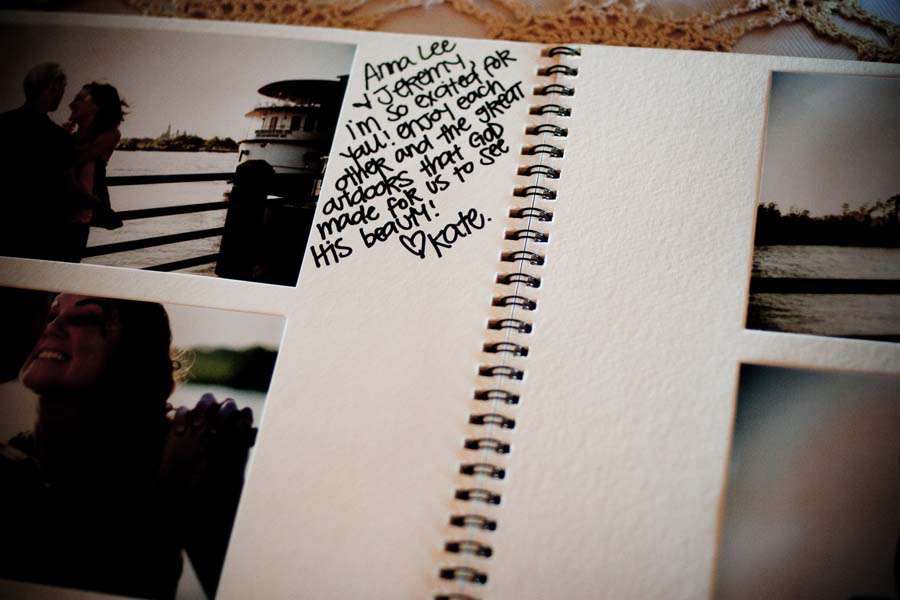 Anna Lee
& Jeremy,
im so excited for
yall! enjoy each
other and the great
outdoors that God
made for us to see
His beauty!
♡ kate.